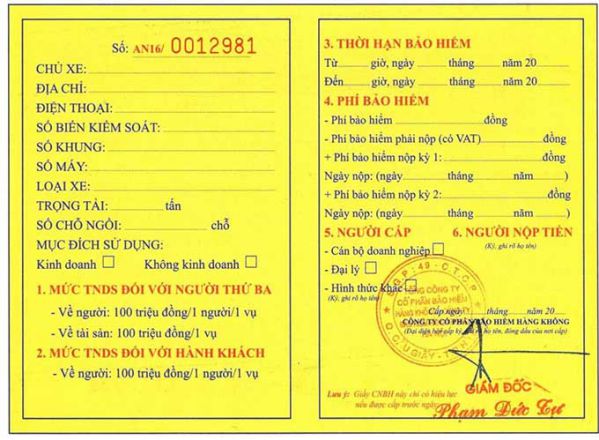 Số: AN16/ 0012981
CHỦ XE:
ĐỊA CHỈ:
ĐIỆN THOẠI:
SỐ BIỂN KIỂM SOÁT:
SỐ KHUNG:
SỐ MÁY:
LOẠI XE:
TRỌNG TẢI: tấn
SỐ CHỖ NGỒI: chỗ
MỤC ĐÍCH SỬ DỤNG:
Kinh doanh ☐ Không kinh doanh ☐
1. MỨC TNDS ĐỐI VỚI NGƯỜI THỨ BA
- Về người: 100 triệu đồng/1 người/1 vụ
- Về tài sản: 100 triệu đồng/1 vụ
2. MỨC TNDS ĐỐI VỚI HÀNH KHÁCH
- Về người: 100 triệu đồng/1 người/1 vụ
3. THỜI HẠN BẢO HIỂM
Từ giờ, ngày tháng năm 20
Đến giờ, ngày tháng năm 20
4. PHÍ BẢO HIỂM
- Phí bảo hiểm đồng
- Phí bảo hiểm phải nộp (có VAT) đồng
+ Phí bảo hiểm nộp kỳ 1: đồng
Ngày nộp: (ngày tháng năm 20
+ Phí bảo hiểm nộp kỳ 2: đồng
Ngày nộp: (ngày tháng năm 20
5. NGƯỜI CẤP 6. NGƯỜI NỘP TIỀN
- Cán bộ doanh nghiệp ☐ (Ký, ghi rõ họ tên)
- Đại lý ☐
- Hình thức khác ☐
(Ký, ghi rõ họ tên)
Cấp ngày tháng năm 20
CÔNG TY CỔ PHẦN BẢO HIỂM HÀNG KHÔNG
TỔNG CÔNG TY
CỔ PHẦN BẢO HIỂM
HÀNG KHÔNG
Lưu ý: Giấy CNBH này chỉ có hiệu lực
nếu được cấp trước ngày
GIÁM ĐỐC
Phạm Đức Tự